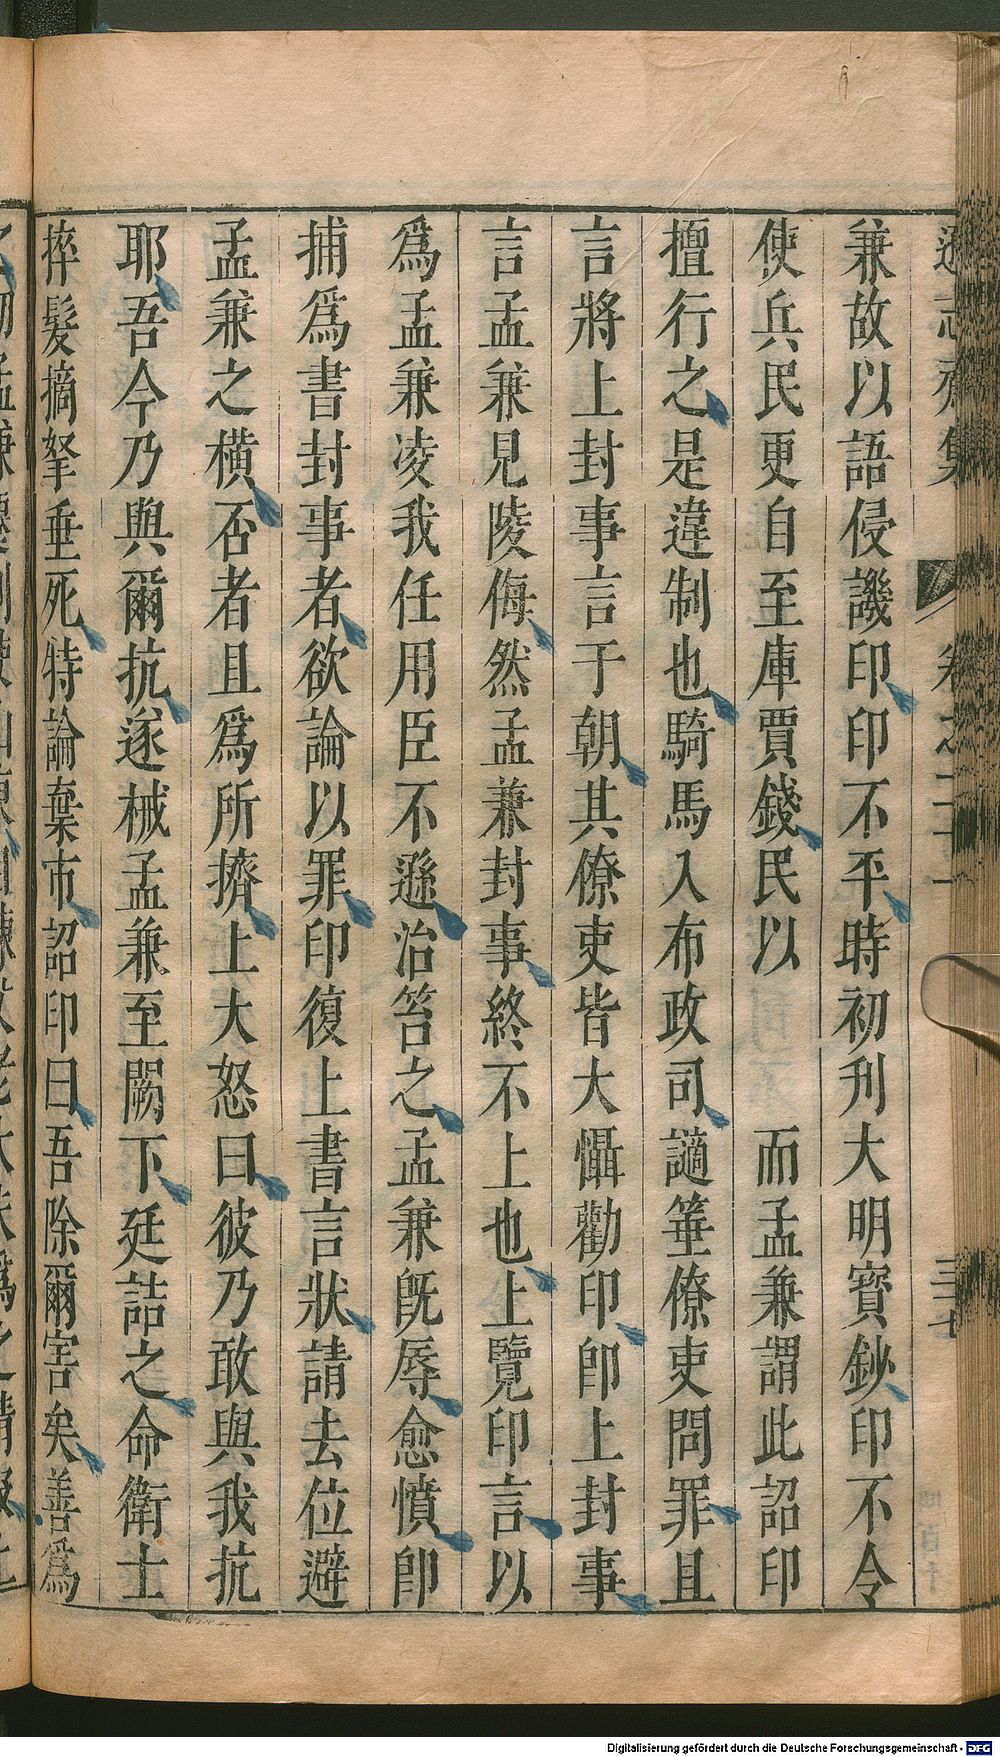 遜志齋集 卷之二十一 三十七
兼故以語侵譏印印不平時初刋大明寳鈔印不令
使兵民更自至庫賈錢民以 而孟兼謂此詔印
擅行之是違制也騎馬入布政司讁箠僚吏問罪且
言將上封事言于朝其僚吏皆大懾勸印卽上封事
言孟兼見陵侮然孟兼封事終不上也上覽印言以
爲孟兼凌我任用臣不遜治笞之孟兼旣辱愈憤卽
捕爲書封事者欲論以罪印復上書言狀請去位避
孟兼之横否者且爲所擠上大怒曰彼乃敢與我抗
耶吾今乃與爾抗遂械孟兼至闕下廷詰之命衛士
捽髮摘拏垂死特論棄市詔印曰吾除爾害矣善爲
Digitalisierung gefördert durch die Deutsche Forschungsgemeinschaft - DFG